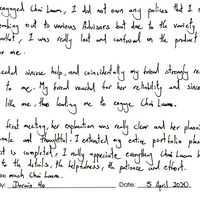 engaged Chai Luan, I did not own any polices that I
out to various Advisors but due to the variety
market, I was really lost and confused on the product
or me.
needed sincere help, and coincidentally my friend strongly re
to me. My friend vouched for her reliability and since
like me, thus leading me to engage Chai Luan.
first meeting, her explanation was really clear and her planni
and thoughtful. I entrusted my entire portfolio plan
it is completed, I really appreciate everything Chai Luan h
to the details, the helpfulness, the patience and effort.
so much Chai Luan.
by: Ho Date: 5 April 2020